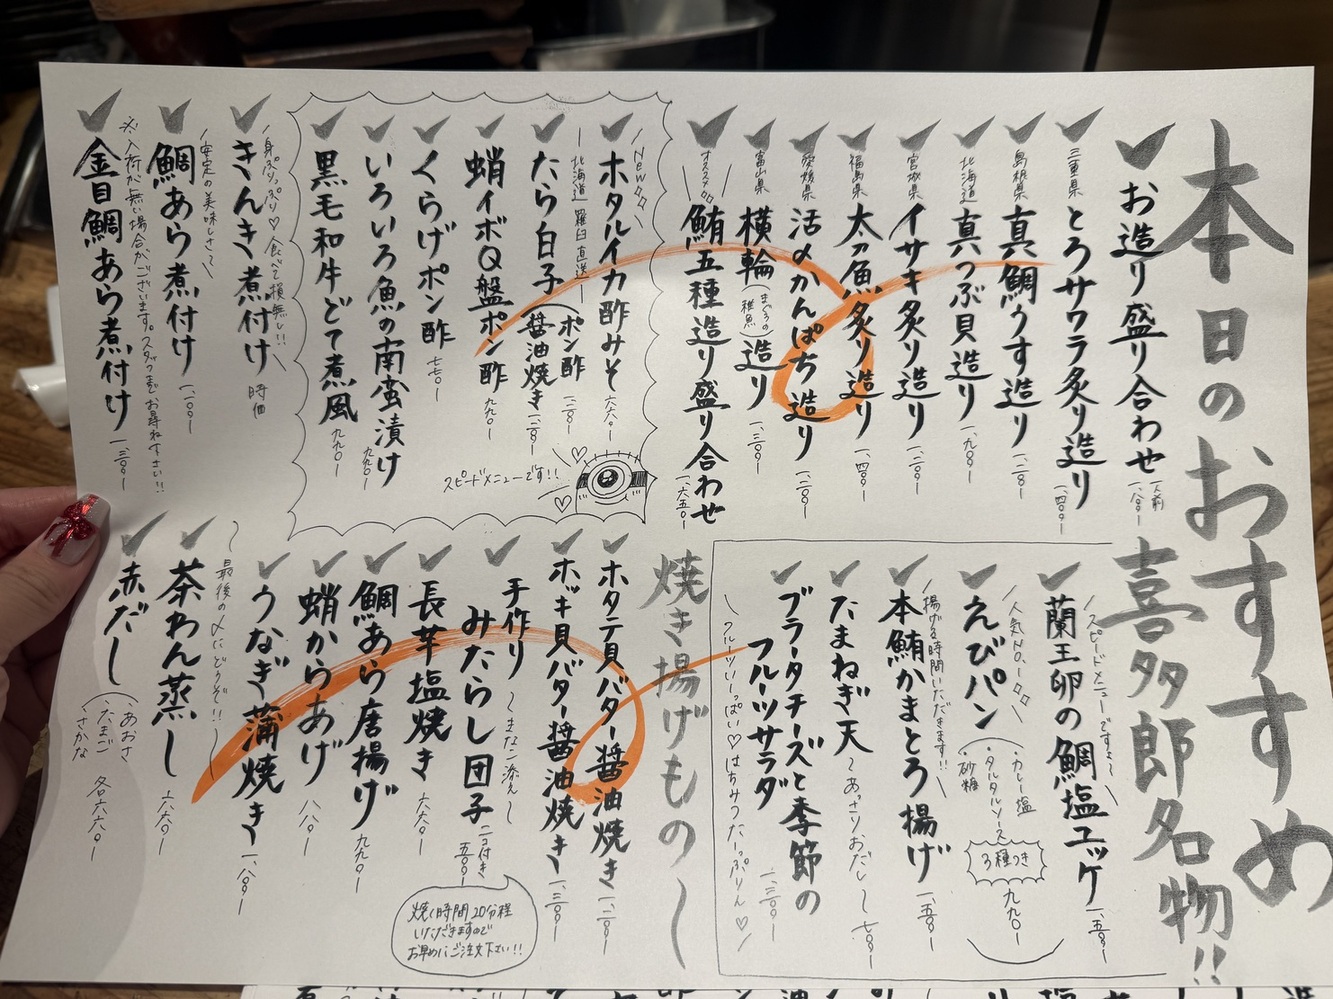 本日のおすすめ
お造り盛り合わせ 一人前 一、八〇〇-
三重県 とろサワラ炙り造り 一、四〇〇-
島根県 真鯛うす造り 一、二〇〇-
北海道 真つぶ貝造り 一、九〇〇-
宮城県 イサキ炙り造り 一、二〇〇-
福島県 太刀魚炙り造り 一、四〇〇-
愛媛県 活〆かんぱち造り 一、二〇〇-
富山県 横輪(まぐろの稚魚)造り 一、三〇〇-
オススメ 鮪五種造り盛り合わせ 一、六五〇-
NEW
ホタルイカ酢みそ 六六〇-
北海道 羅臼 直送
たら白子(ポン酢 一、二〇〇-
醤油焼き 一、二〇〇-
蛸イボQ盤ポン酢 九九〇-
くらげポン酢 七七〇-
いろいろ魚の南蛮漬け 九九〇-
黒毛和牛どて煮風 九九〇-
スピードメニューです!!
身ぷりっぷり♡食べて損無し!!
きんき煮付け 時価
安定の美味しさ
鯛あら煮付け 一、一〇〇-
※入荷が無い場合がございます。スタッフまでお尋ね下さい!!
金目鯛あら煮付け 一、三〇〇-
喜多郎名物!!
スピードメニューですよ〜
蘭王卵の鯛塩ユッケ 一、五〇〇-
人気NO.1
えびパン
・カレー塩
・タルタルソース
・砂糖
3種つき
九九〇-
揚げる時間いただきます!!
本鮪かまとろ揚げ 一、五〇〇-
たまねぎ天 〜あっさりおだし〜 七〇〇-
ブラータチーズと季節の
フルーツサラダ 一、三〇〇-
フルーツいーっぱい♡はちみつたーっぷりん♡
焼き揚げもの〜
ホタテ貝バター醤油焼き 一、二〇〇-
ホッキ貝バター醤油焼き 一、三〇〇-
手作り
みたらし団子 〜きなこ添え〜 二コ付き 五〇〇-
焼く時間20分程
いただきますので
お早めにご注文下さい!!
長芋塩焼き 六六〇-
鯛あら唐揚げ 九九〇-
蛸からあげ 八八〇-
うなぎ蒲焼き 一、八〇〇-
〜最後の〆にどうぞ!!〜
茶わん蒸し 六六〇-
赤だし(あおさ
たまご
さかな 各六六〇-